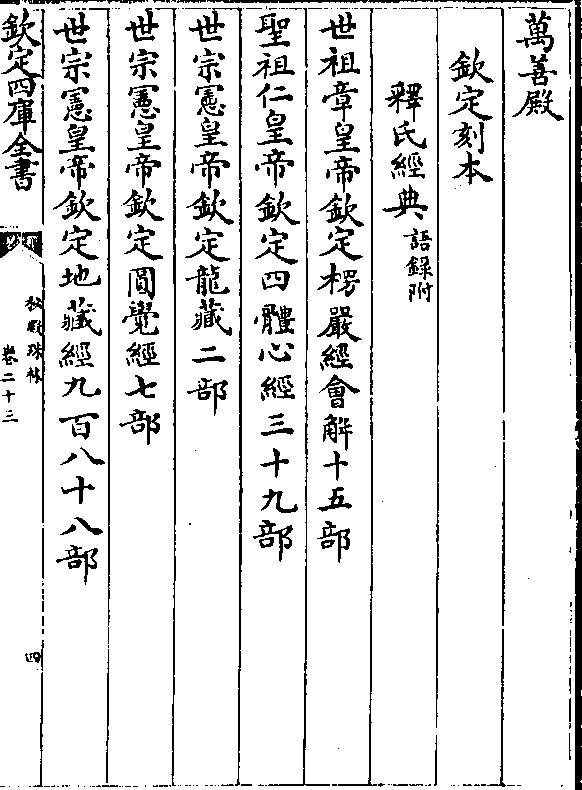 萬善殿
欽定刻本
釋氏經典語錄附
世祖章皇帝欽定楞嚴經會解十五部
聖祖仁皇帝欽定四體心經三十九部
世宗憲皇帝欽定龍藏二部
世宗憲皇帝欽定圓覺經七部
世宗憲皇帝欽定地藏經九百八十八部
欽定四庫全書
秘殿珠林
卷二十三
四